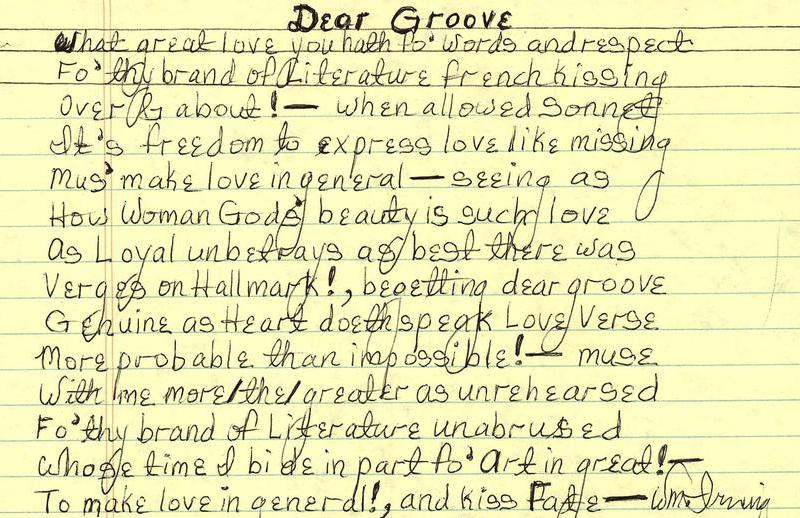 Dear Groove
What great love you hath fo' words and respect
Fo' thy brand of Literature french kissing
Over & about!— when allowed Sonnet
It's freedom to express love like missing
Mus' make love in general — seeing as
How Woman Gods' beauty is such love
As Loyal unbetrays as best there was
Verges on Hallmark!, begetting dear groove
Genuine as Heart doeth speak Love Verse
More probable than impossible!— muse
With me more/the/greater as unrehearsed
Fo' thy brand of Literature unabrused
Whose time I bide in part fo' Art in great!—
To make love in general!, and kiss Fate — Wm. Irving